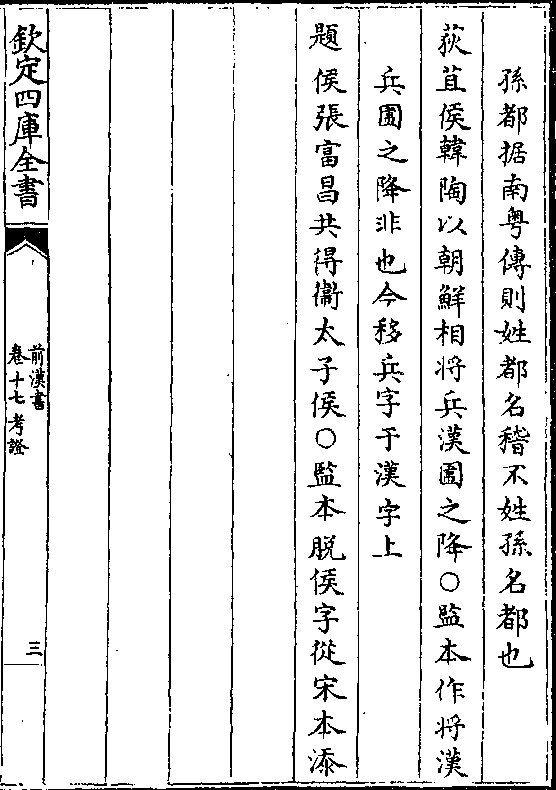 孫都据南粤傳則姓都名稽不姓孫名都也
荻苴侯韓陶以朝鮮相將兵漢圍之降○監本作將漢
兵圍之降非也今移兵字于漢字上
題侯張富昌共得衞太子侯○監本脱侯字從宋本添
欽定四庫全書
前漢書
卷十七考證
三